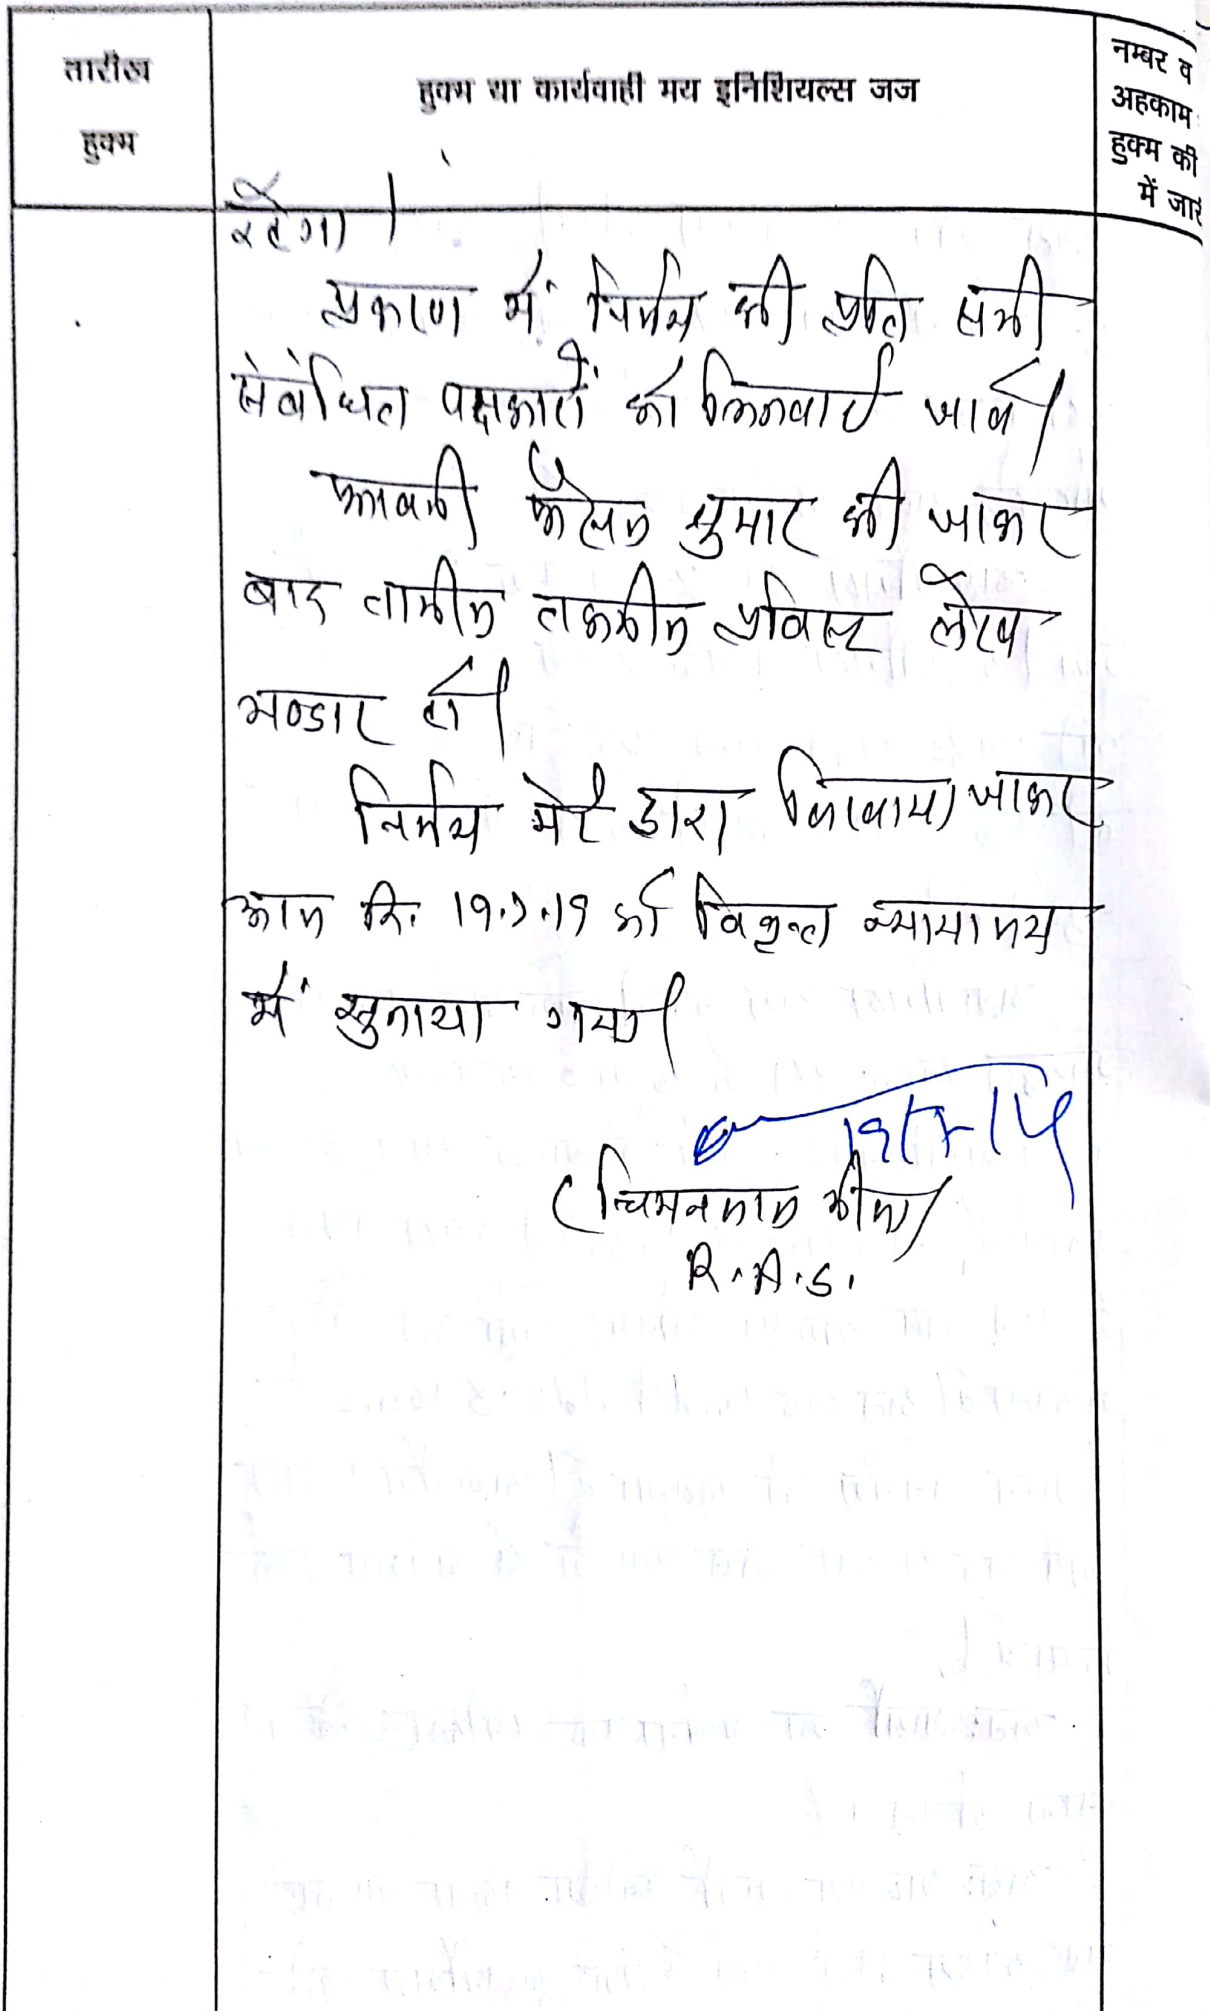 तारीख
हुक्म
हुक्म या कार्यवाही मय इनिशियल्स जज
नम्बर व
अहकाम
हुक्म की
में जारी
रहेगा।
प्रकरण में निर्णय की प्रति सभी
संबंधित पक्षकारों को भिजवाई जावे।
पत्रावली फैसल शुमार की जाकर
बाद तामील तकमील प्रविष्ट लेख
भण्डार हो।
निर्णय मेरे द्वारा लिखवाया जाकर
आज दि. 19.7.19 को विवृत न्यायालय
में सुनाया गया।
19/7/19
(चिमनलाल मीणा)
R.A.S.